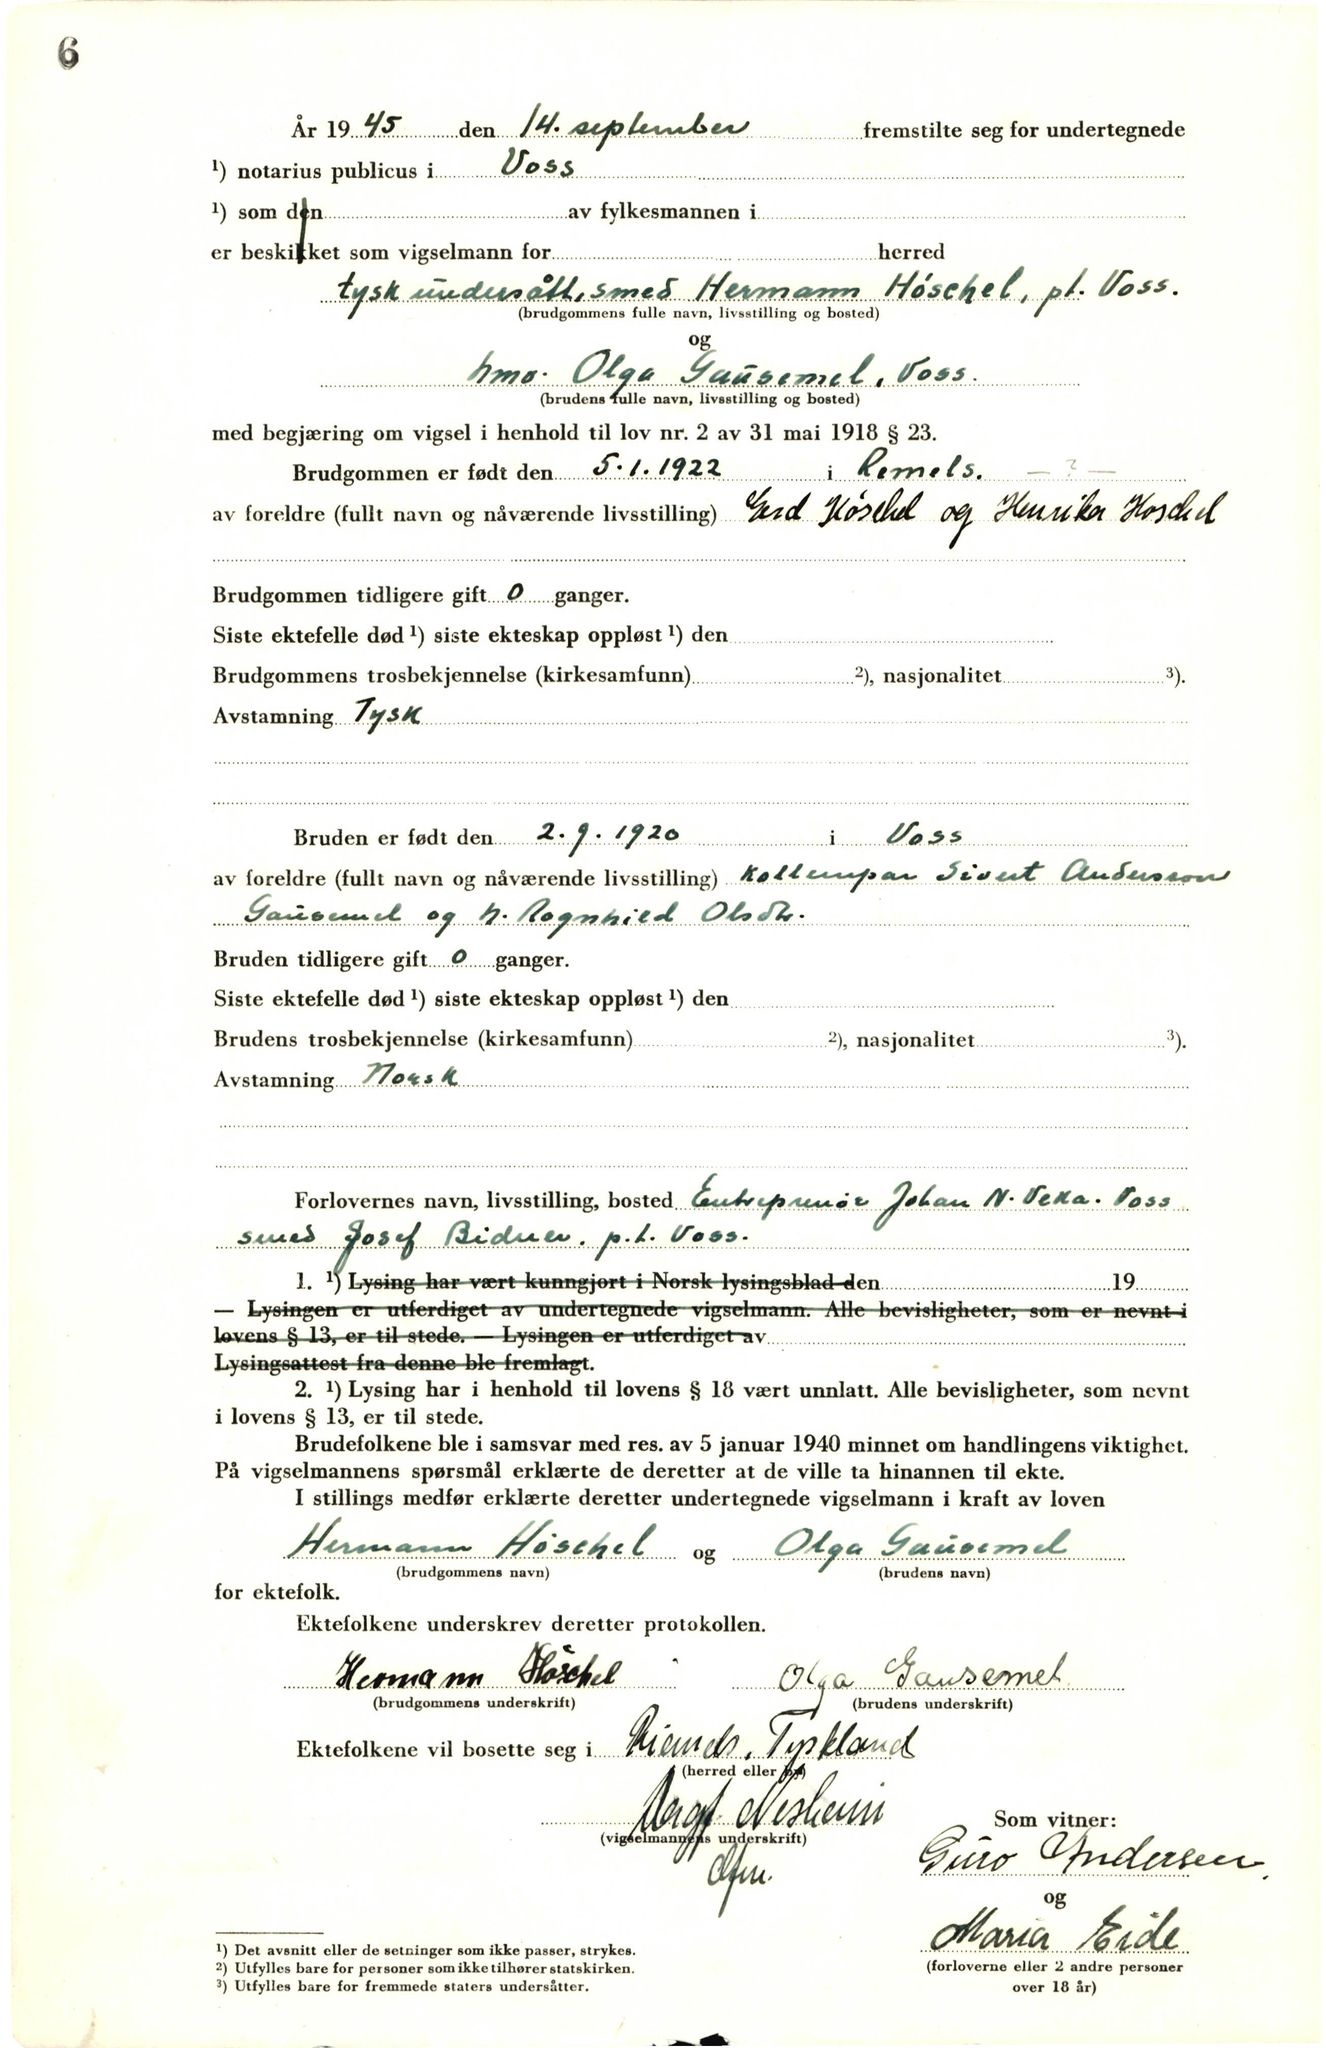 6
År 19 45 den 14. september fremstilte seg for undertegnede
¹) notarius publicus i Voss
¹) som den av fylkesmannen i
er beskikket som vigselmann for herred
tysk undersått, smed Hermann Höschel, pt. Voss.
(brudgommens fulle navn, livsstilling og bosted)
og
hmo. Olga Gausemel, Voss.
(brudens fulle navn, livsstilling og bosted)
med begjæring om vigsel i henhold til lov nr. 2 av 31 mai 1918 § 23.
Brudgommen er født den 5.1.1922 i Remels. — ? —
av foreldre (fullt navn og nåværende livsstilling) Gerd Höschel og Henrika Hoschel
Brudgommen tidligere gift 0 ganger.
Siste ektefelle død ¹) siste ekteskap oppløst ¹) den
Brudgommens trosbekjennelse (kirkesamfunn) ²), nasjonalitet ³).
Avstamning Tysk
Bruden er født den 2.9.1920 i Voss
av foreldre (fullt navn og nåværende livsstilling) Sivert Anderson
Gausemel og h. Rognhild Olsdtr.
Bruden tidligere gift 0 ganger.
Siste ektefelle død ¹) siste ekteskap oppløst ¹) den
Brudens trosbekjennelse (kirkesamfunn) ²), nasjonalitet ³).
Avstamning Norsk
Forlovernes navn, livsstilling, bosted Entreprenör Johan N. Veka. Voss
smed Josef Bidner. p.t. Voss.
1. ¹) Lysing har vært kunngjort i Norsk lysingsblad den 19
— Lysingen er utferdiget av undertegnede vigselmann. Alle bevisligheter, som er nevnt i
lovens § 13, er til stede. — Lysingen er utferdiget av
Lysingsattest fra denne ble fremlagt.
2. ¹) Lysing har i henhold til lovens § 18 vært unnlatt. Alle bevisligheter, som nevnt
i lovens § 13, er til stede.
Brudefolkene ble i samsvar med res. av 5 januar 1940 minnet om handlingens viktighet.
På vigselmannens spørsmål erklærte de deretter at de ville ta hinannen til ekte.
I stillings medfør erklærte deretter undertegnede vigselmann i kraft av loven
Hermann Höschel og Olga Gausemel
(brudgommens navn) (brudens navn)
for ektefolk.
Ektefolkene underskrev deretter protokollen.
Hermann Höschel Olga Gausemel
(brudgommens underskrift) (brudens underskrift)
Ektefolkene vil bosette seg i Tyskland
(herred eller by)
Nesheim
(vigselmannens underskrift)
Som vitner:
Guro Andersen.
og
Maria Eide
(forloverne eller 2 andre personer
over 18 år)
¹) Det avsnitt eller de setninger som ikke passer, strykes.
²) Utfylles bare for personer som ikke tilhører statskirken.
³) Utfylles bare for fremmede staters undersåtter.